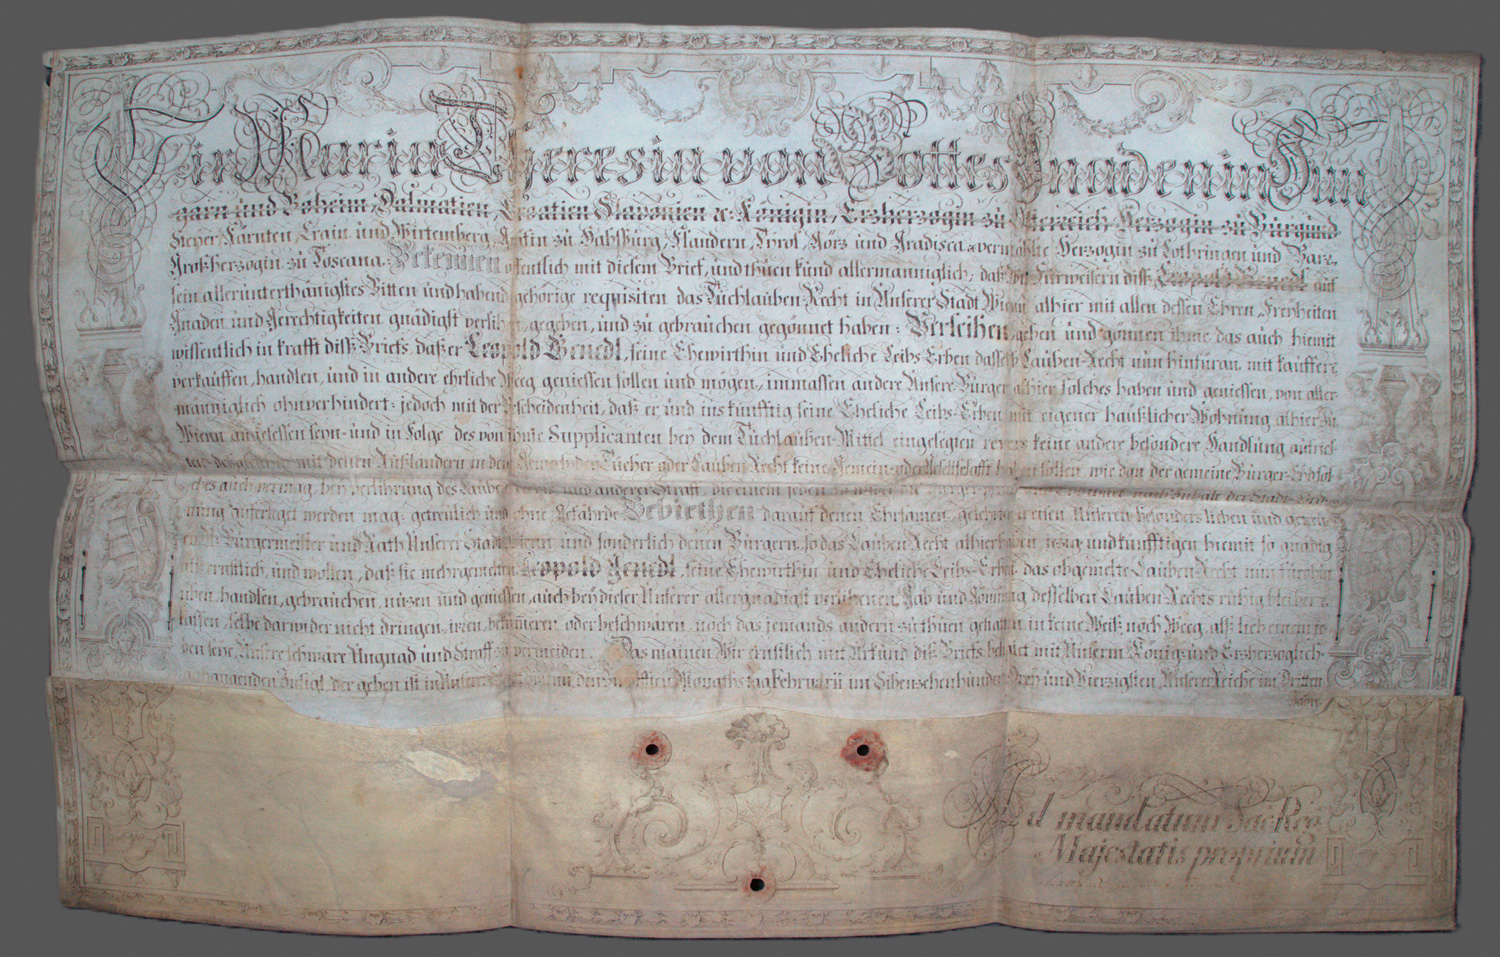 Wir Maria Theresia von Gottes Gnaden in Hun
garn und Böheim, Dalmatien, Croatien Slavonien &c. Königin, Ertzherzogin zu Österreich, Herzogin zu Burgund
Steyer, Kärnten, Crain und Wirtemberg, Gräfin zu Habspurg, Flandern, Tyrol, Görz und Gradisca, vermählte Herzogin zu Lothringen und Bar,
Großherzogin zu Toscana. Bekennen offentlich mit diesem Brief, und thuen kund allermänniglich, daß Wir Fürweisern diß Leopold Genedl auf
sein allerunterthänigstes Bitten und habend gehörige requisiten das Tuchlauben-Recht in Unserer Stadt Wienn alhier mit allen dessen Ehren, Freyheiten
Gnaden und Gerechtigkeiten gnädigst verlihen, gegeben, und zu gebrauchen gegonnet haben: Verleihen, geben und gönnen ihme das auch hiemit
wissentlich in krafft diß Briefs, daß er Leopold Genedl, seine Ehewirthin und Eheliche Leibs-Erben dasselb Lauben-Recht nun hinfüran mit kauffen,
verkauffen, handlen, und in andere ehrliche Weeg geniessen sollen und mögen, immassen andere Unsere Burger alhier solches haben und geniessen, von aller
männiglich ohnverhindert: jedoch mit der Bescheidenheit, daß er und ins künfftig seine Eheliche Leibs-Erben mit eigener haußlicher Wohnung alhier zu
Wienn angesessen seyn, und in Folge des von ihme Supplicanten bey dem Tuchlauben-Mittel eingelegten revers keine andere besondere Handlung aufrich
ten, desgleichen mit denen Außländern in dem Gewerb der Tücher oder Lauben Recht keine Gemein- oder Gesellschafft haben sollen, wie dan der gemeine Burger-Eyd sol
ches auch vermag, bey verliehrung des Lauben Rechts, und anderer Straff, die einem jeden
nung auferleget werden mag: getreulich und ohne Gefährde. Gebiethen darauf denen Ehrsamen, gelehrten weisen Unseren besonders lieben und getreuen
Burgermeister und Rath Unserer Stadt Wienn und sonderlich denen Burgern, so das Lauben Recht alhier haben, jezig und künfftigen hiemit so gnädig
alß ernstlich, und wollen, daß sie mehrgemelten Leopold Genedl, seine Ehewirthin und Eheliche Leibs-Erben das obgemelte Lauben-Recht nun fürohin
üben, handlen, gebrauchen, nuzen und geniessen, auch bey dieser Unserer allergnädigst verlihenen Gab und Gönnung desselben Lauben-Rechts ruhig bleiben
lassen, selbe darwider nicht dringen, irren, bekümeren oder beschwären, noch das jemands andern zu thuen gestatten in keine Weiß noch Weeg, alß lieb einem je
den seye, Unsere schwäre Ungnad und Straff zu vermeiden. Das mainen Wir ernstlich mit Urkund diß Briefs besiglet mit Unserm König- und Erzherzoglich-
anhangenden Insigl, der geben ist in Unserer Stadt Wienn den Monaths tag Februarii im Sibenzehenhundert Drey und Vierzigsten, Unserer Reiche im Dritten
Jahr.
Ad mandatum Sac Reg
Majestatis proprium